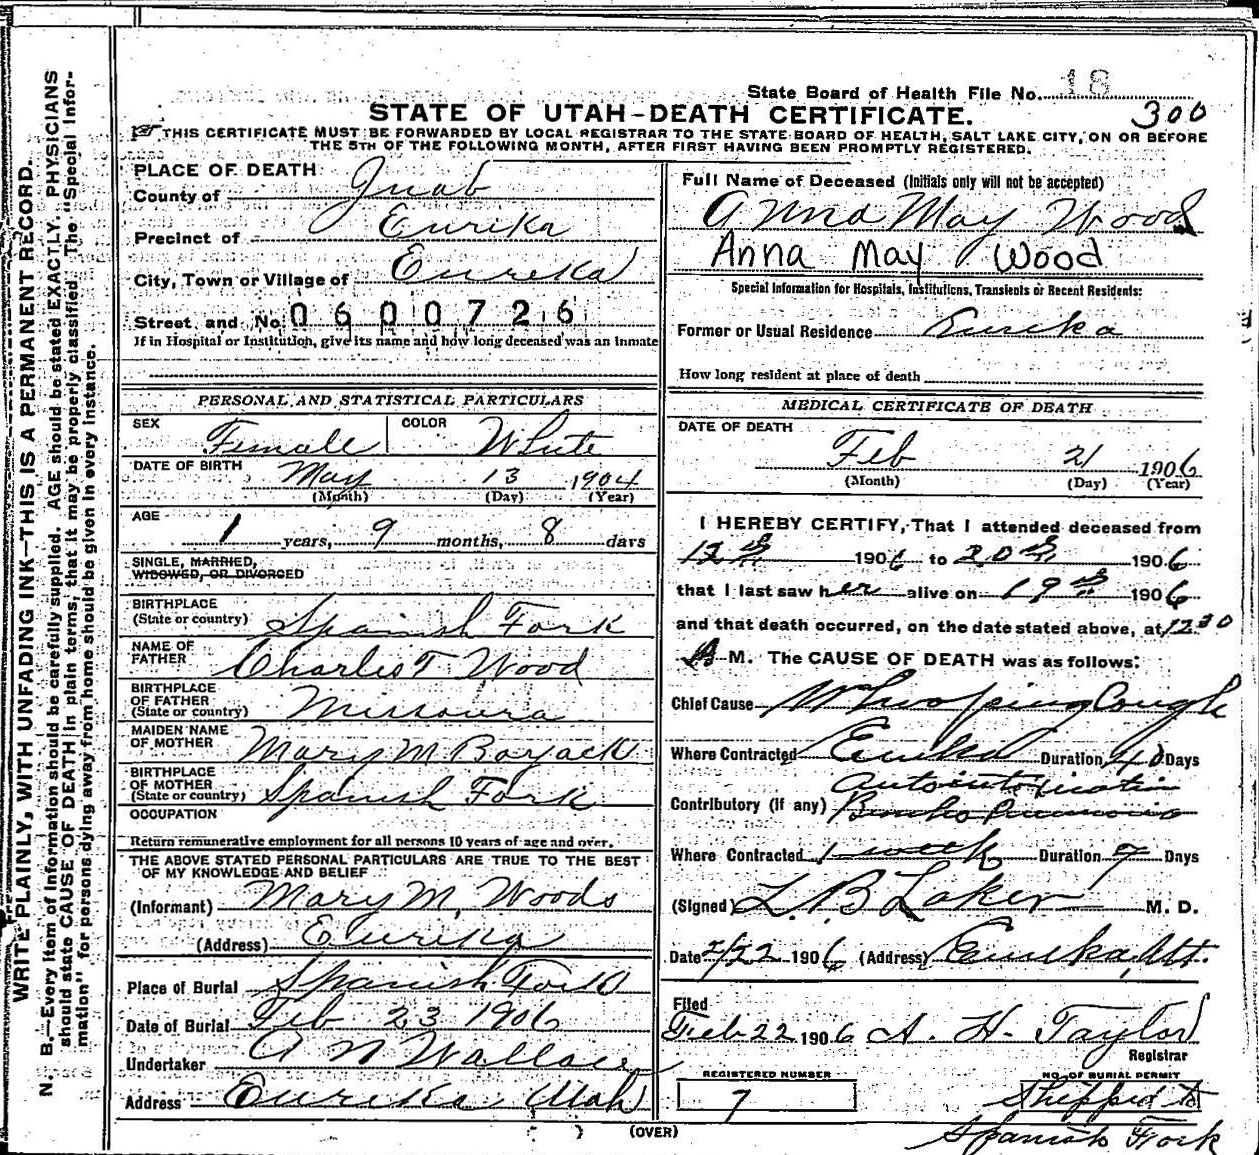 State Board of Health File No. 18
STATE OF UTAH-DEATH CERTIFICATE. 300
THIS CERTIFICATE MUST BE FORWARDED BY LOCAL REGISTRAR TO THE STATE BOARD OF HEALTH, SALT LAKE CITY, ON OR BEFORE
THE 5TH OF THE FOLLOWING MONTH, AFTER FIRST HAVING BEEN PROMPTLY REGISTERED.
WRITE PLAINLY, WITH UNFADING INK—THIS IS A PERMANENT RECORD.
N. B.—Every item of information should be carefully supplied. AGE should be stated EXACTLY. PHYSICIANS
should state CAUSE OF DEATH in plain terms, that it may be properly classified. The "Special Infor-
mation" for persons dying away from home should be given in every instance.
PLACE OF DEATH
County of Juab
Precinct of Eurika
City, Town or Village of Eureka
Street and No. 0600726
If in Hospital or Institution, give its name and how long deceased was an inmate
PERSONAL AND STATISTICAL PARTICULARS
SEX Female COLOR White
DATE OF BIRTH May 13 1904
(Month) (Day) (Year)
AGE 1 years, 9 months, 8 days
SINGLE, MARRIED,
WIDOWED, OR DIVORCED
BIRTHPLACE
(State or country) Spanish Fork
NAME OF
FATHER Charles T Wood
BIRTHPLACE
OF FATHER
(State or country) Missoura
MAIDEN NAME
OF MOTHER Mary M Boyack
BIRTHPLACE
OF MOTHER
(State or country) Spanish Fork
OCCUPATION
Return remunerative employment for all persons 10 years of age and over.
THE ABOVE STATED PERSONAL PARTICULARS ARE TRUE TO THE BEST
OF MY KNOWLEDGE AND BELIEF
(Informant) Mary M. Woods
(Address) Eurika
Place of Burial Spanish Fork
Date of Burial Feb 23 1906
Undertaker A N Wallace
Address Eurika Utah
Full Name of Deceased (Initials only will not be accepted)
Anna May Wood
Anna May Wood
Special Information for Hospitals, Institutions, Transients or Recent Residents:
Former or Usual Residence Eurika
How long resident at place of death
MEDICAL CERTIFICATE OF DEATH
DATE OF DEATH
Feb 21 1906
(Month) (Day) (Year)
I HEREBY CERTIFY, That I attended deceased from
12th 1906 to 20th 1906
that I last saw her alive on 19th 1906
and that death occurred, on the date stated above, at 12 30
A M. The CAUSE OF DEATH was as follows:
Chief Cause Whooping Cough
Where Contracted Eureka Duration 40 Days
Autointoxication
Contributory (if any) Broncho Pneumonia
Where Contracted 1 week Duration 7 Days
(Signed) L. B Laker M. D.
Date 2/22 1906 (Address) Eureka, Ut.
Filed
Feb 22 1906 A. H. Taylor
Registrar
REGISTERED NUMBER NO. OF BURIAL PERMIT
7 Shipped to
Spanish Fork
(OVER)